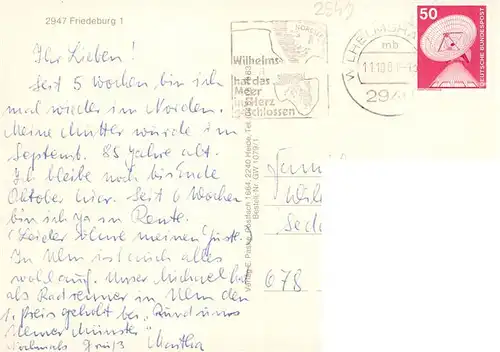 2947 Friedeburg 1
Ihr Lieben!
Seit 5 Wochen bin ich
mal wieder im Norden.
Meine Mutter wurde im
Septemb. 85 Jahre alt.
Ich bleibe noch bis Ende
Oktober hier. Seit 6 Wochen
bin ich ja in Rente.
(Leider ohne meinen Justl.
In Ulm ist auch alles
wohlauf. Unser Michael hat
als Radrenner in Ulm den
1. Preis geholt bei "Rund ums
Ulmer Münster"
Nochmals Gruß Martha
2949
Wilhelms
hat das
Meer
ins Herz
geschlossen
WILHELMSHA
mb
11.10.8
294
50
DEUTSCHE BUNDESPOST
Verlag E. Paske, Postfach 1664, 2240 Heide, Tel.
Bestell-Nr. GW 1079/1
Fam
Wil
Seda
678